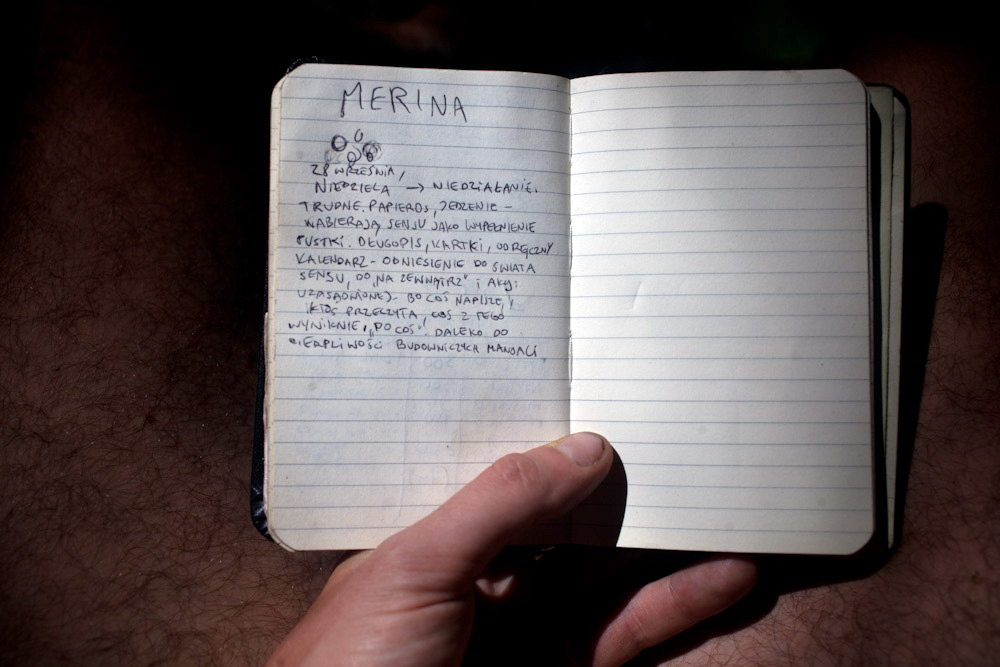 MERINA
28 WRZEŚNIA,
NIEDZIELA → NIEDZIAŁANIE.
TRUDNE. PAPIEROS, JEDZENIE –
NABIERAJĄ SENSU JAKO WYPEŁNIENIE
PUSTKI. DŁUGOPIS, KARTKI, ODRĘCZNY
KALENDARZ – ODNIESIENIE DO ŚWIATA
SENSU, DO „NA ZEWNĄTRZ" I
UZASADNIONEJ – BO COŚ NAPISZĘ,
KTOŚ PRZECZYTA, COŚ Z TEGO
WYNIKNIE, „PO COŚ". DALEKO DO
CIERPLIWOŚCI BUDOWNICZYCH MANDALI.